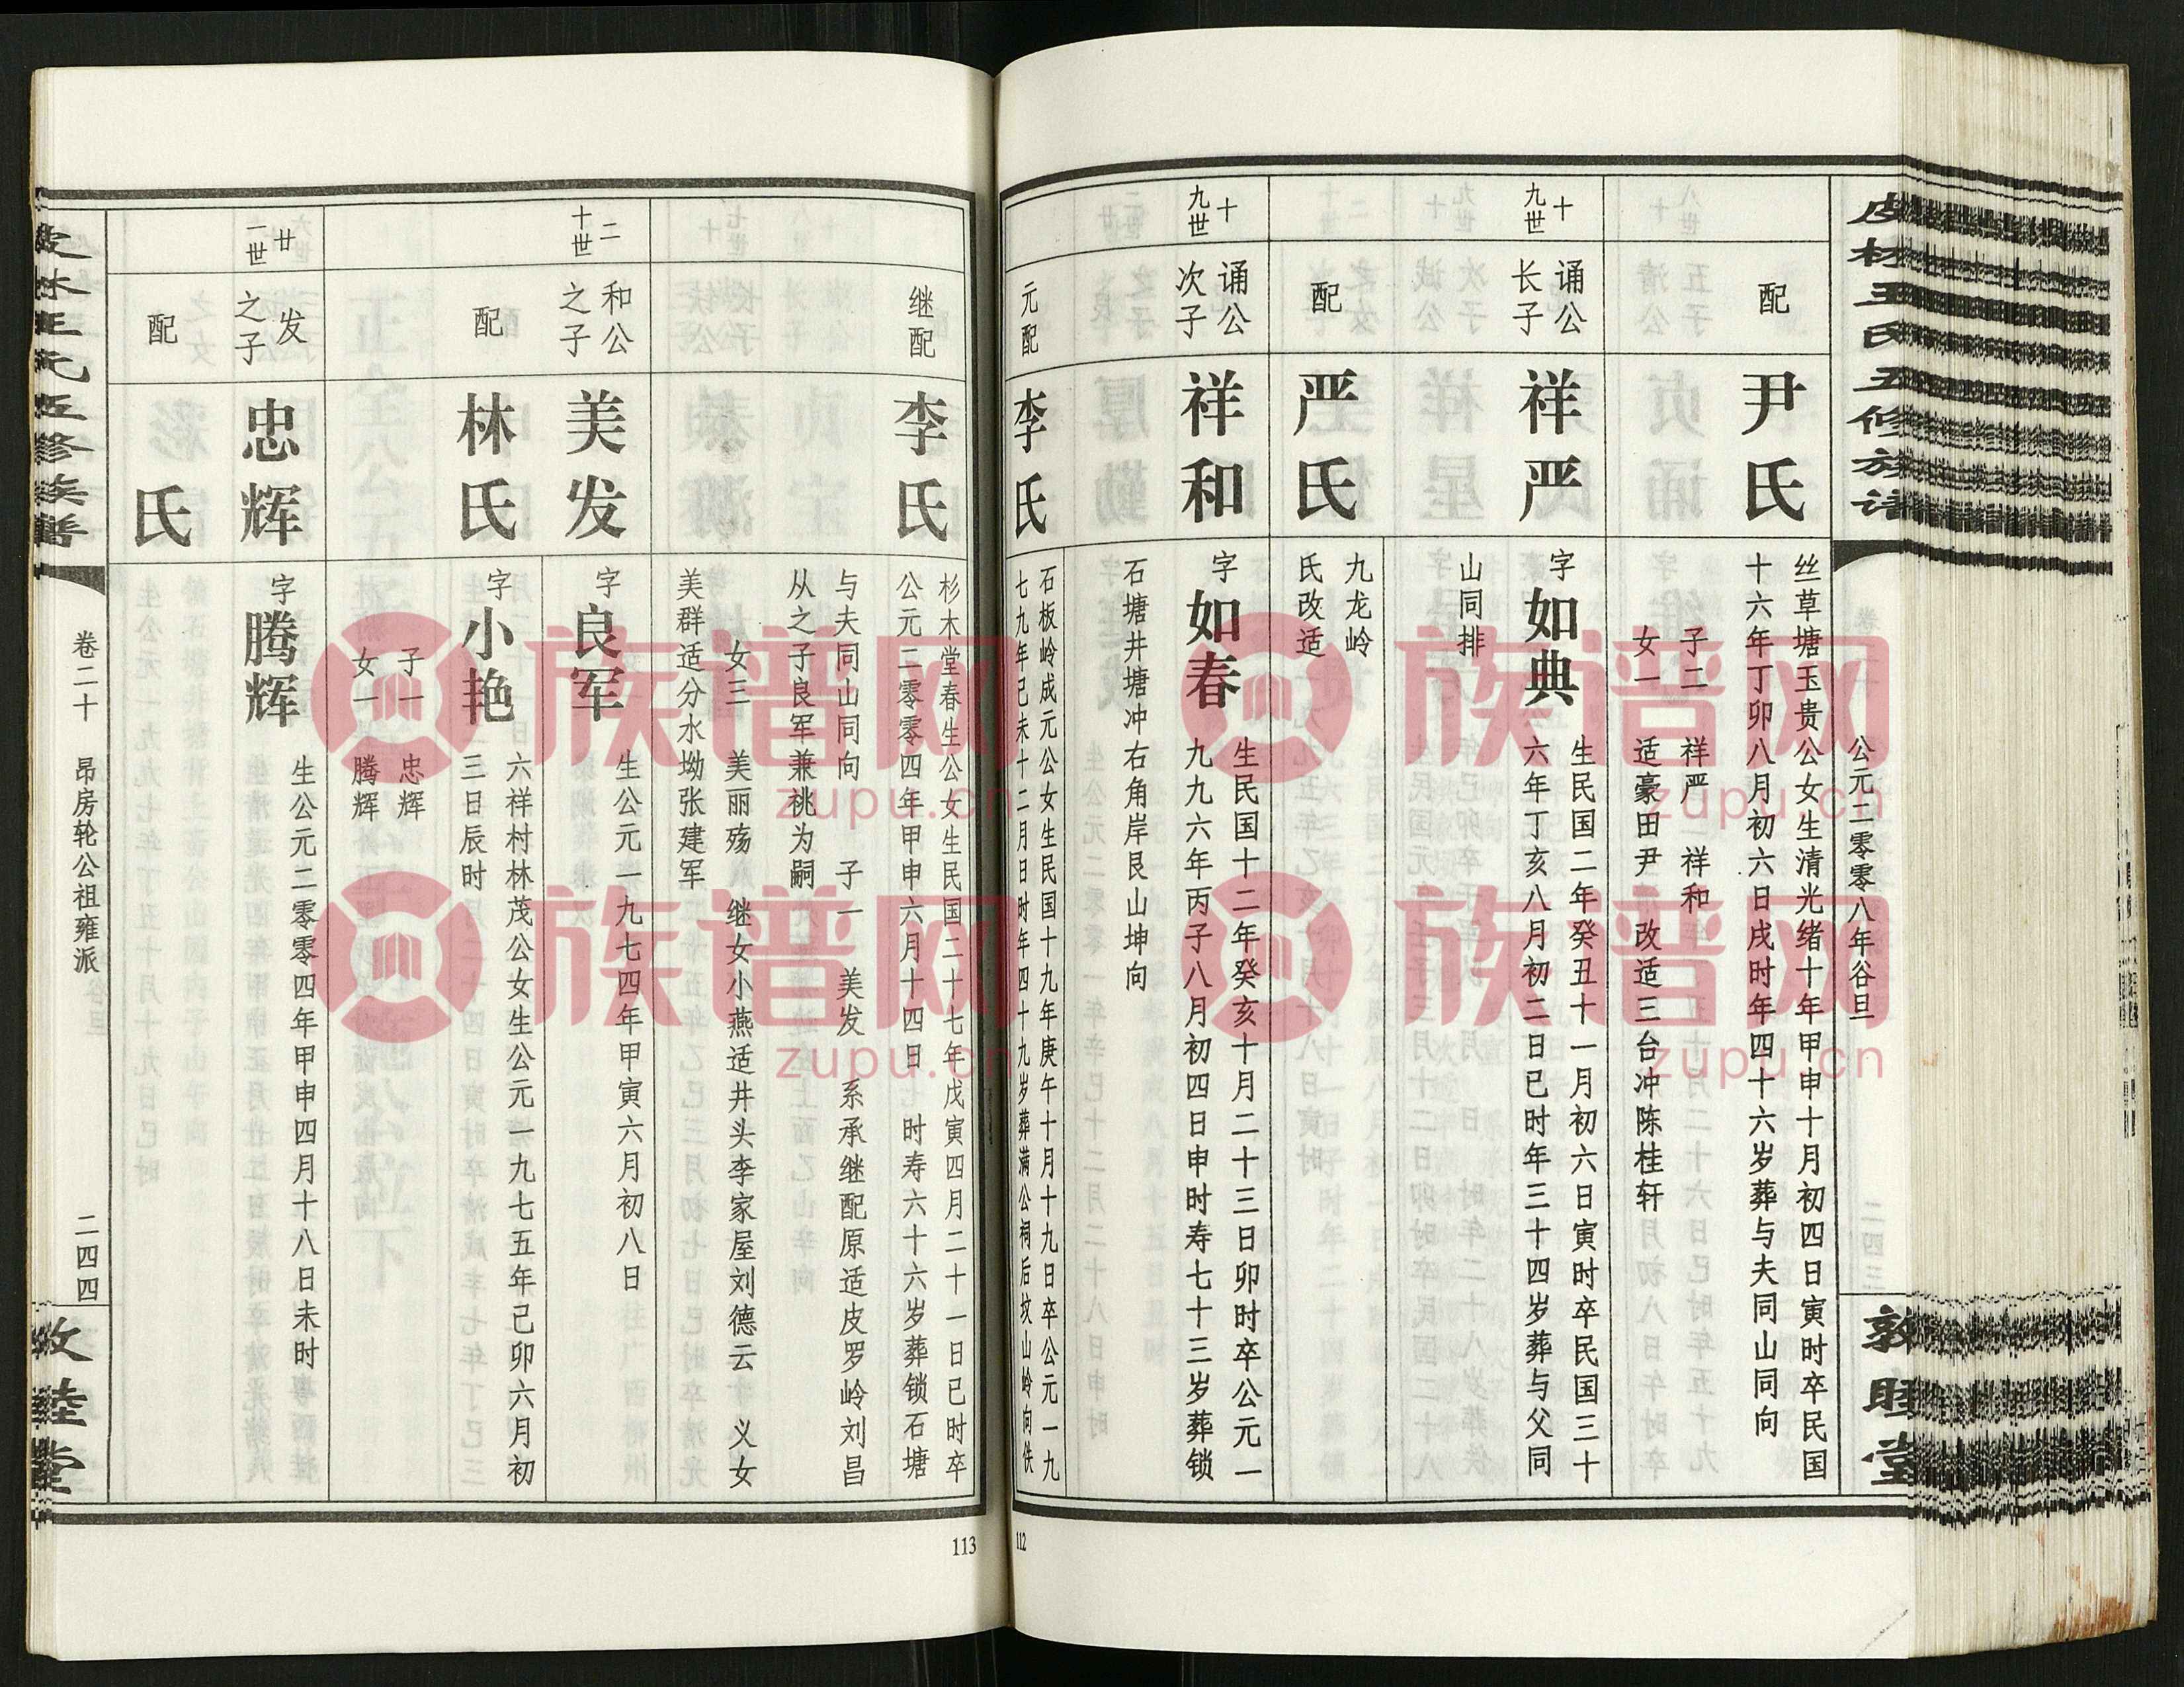 皮林王氏五修族谱
公元二零零八年谷旦
敦睦堂
配
尹氏
丝草塘玉贵公女生清光绪十年甲申十月初四日寅时卒民国
十六年丁卯八月初六日戌时年四十六岁葬与夫同山同向
子二 祥严 祥和
女一 适豪田尹 改适三台冲陈桂轩
十九世
诵公长子
祥严
字如典
生民国二年癸丑十一月初六日寅时卒民国三十
六年丁亥八月初二日巳时年三十四岁葬与父同
山同排
配
严氏
九龙岭
氏改适
十九世
诵公次子
祥和
字如春
生民国十二年癸亥十月二十三日卯时卒公元一
九九六年丙子八月初四日申时寿七十三岁葬锁
石塘井塘冲右角岸艮山坤向
元配
李氏
石板岭成元公女生民国十九年庚午十月十九日卒公元一九
七九年己未十二月日时年四十九岁葬满公祠后坟山岭向佚
112
继配
李氏
杉木堂春生公女生民国二十七年戊寅四月二十一日巳时卒
公元二零零四年甲申六月十四日 时寿六十六岁葬锁石塘
与夫同山同向 子一 美发 系承继配原适皮罗岭刘昌
从之子良军兼桃为嗣
女三 美丽殇 继女小燕适井头李家屋刘德云 义女
美群适分水坳张建军
二十世
和公之子
美发
字良军
生公元一九七四年甲寅六月初八日
配
林氏
字小艳
六祥村林茂公女生公元一九七五年己卯六月初
三日辰时
子一 忠辉
女一 腾辉
廿一世
发之子
忠辉
字腾辉
生公元二零零四年甲申四月十八日未时
配
氏
卷二十 昂房轮公祖雍派
二四四
113
族谱网
zupu.cn
族谱网
zupu.cn
族谱网
zupu.cn
族谱网
zupu.cn